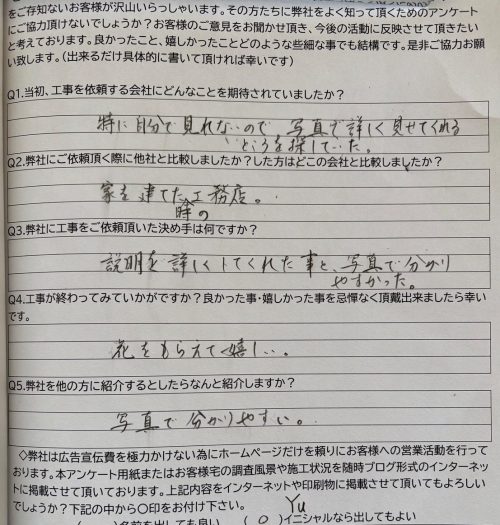 をご存知ないお客様が沢山いらっしゃいます。その方たちに弊社をよく知って頂くためのアンケート
にご協力頂けないでしょうか？お客様のご意見をお聞かせ頂き、今後の活動に反映させて頂きたい
と考えております。良かったこと、嬉しかったことどのような些細な事でも結構です。是非ご協力お願
い致します。（出来るだけ具体的に書いて頂ければ幸いです）
Q1.当初、工事を依頼する会社にどんなことを期待されていましたか？
特に自分で見れないので、写真で詳しく見せてくれる
ところを探していた。
Q2.弊社にご依頼頂く際に他社と比較しましたか？した方はどこの会社と比較しましたか？
家を建てた時の工務店。
Q3.弊社に工事をご依頼頂いた決め手は何ですか？
説明を詳しくしてくれた事と、写真で分かり
やすかった。
Q4.工事が終わってみていかがですか？良かった事・嬉しかった事を忌憚なく頂戴出来ましたら幸い
です。
花をもらえて嬉しい。
Q5.弊社を他の方に紹介するとしたらなんと紹介しますか？
写真で分かりやすい。
◇弊社は広告宣伝費を極力かけない為にホームページだけを頼りにお客様への営業活動を行って
おります。本アンケート用紙またはお客様宅の調査風景や施工状況を随時ブログ形式のインターネッ
トに掲載させて頂いております。上記内容をインターネットや印刷物に掲載させて頂いてもよろしい
でしょうか？下記の中から〇印をお付け下さい。 Yu
( )名前を出しても良い (○)イニシャルなら出してもよい